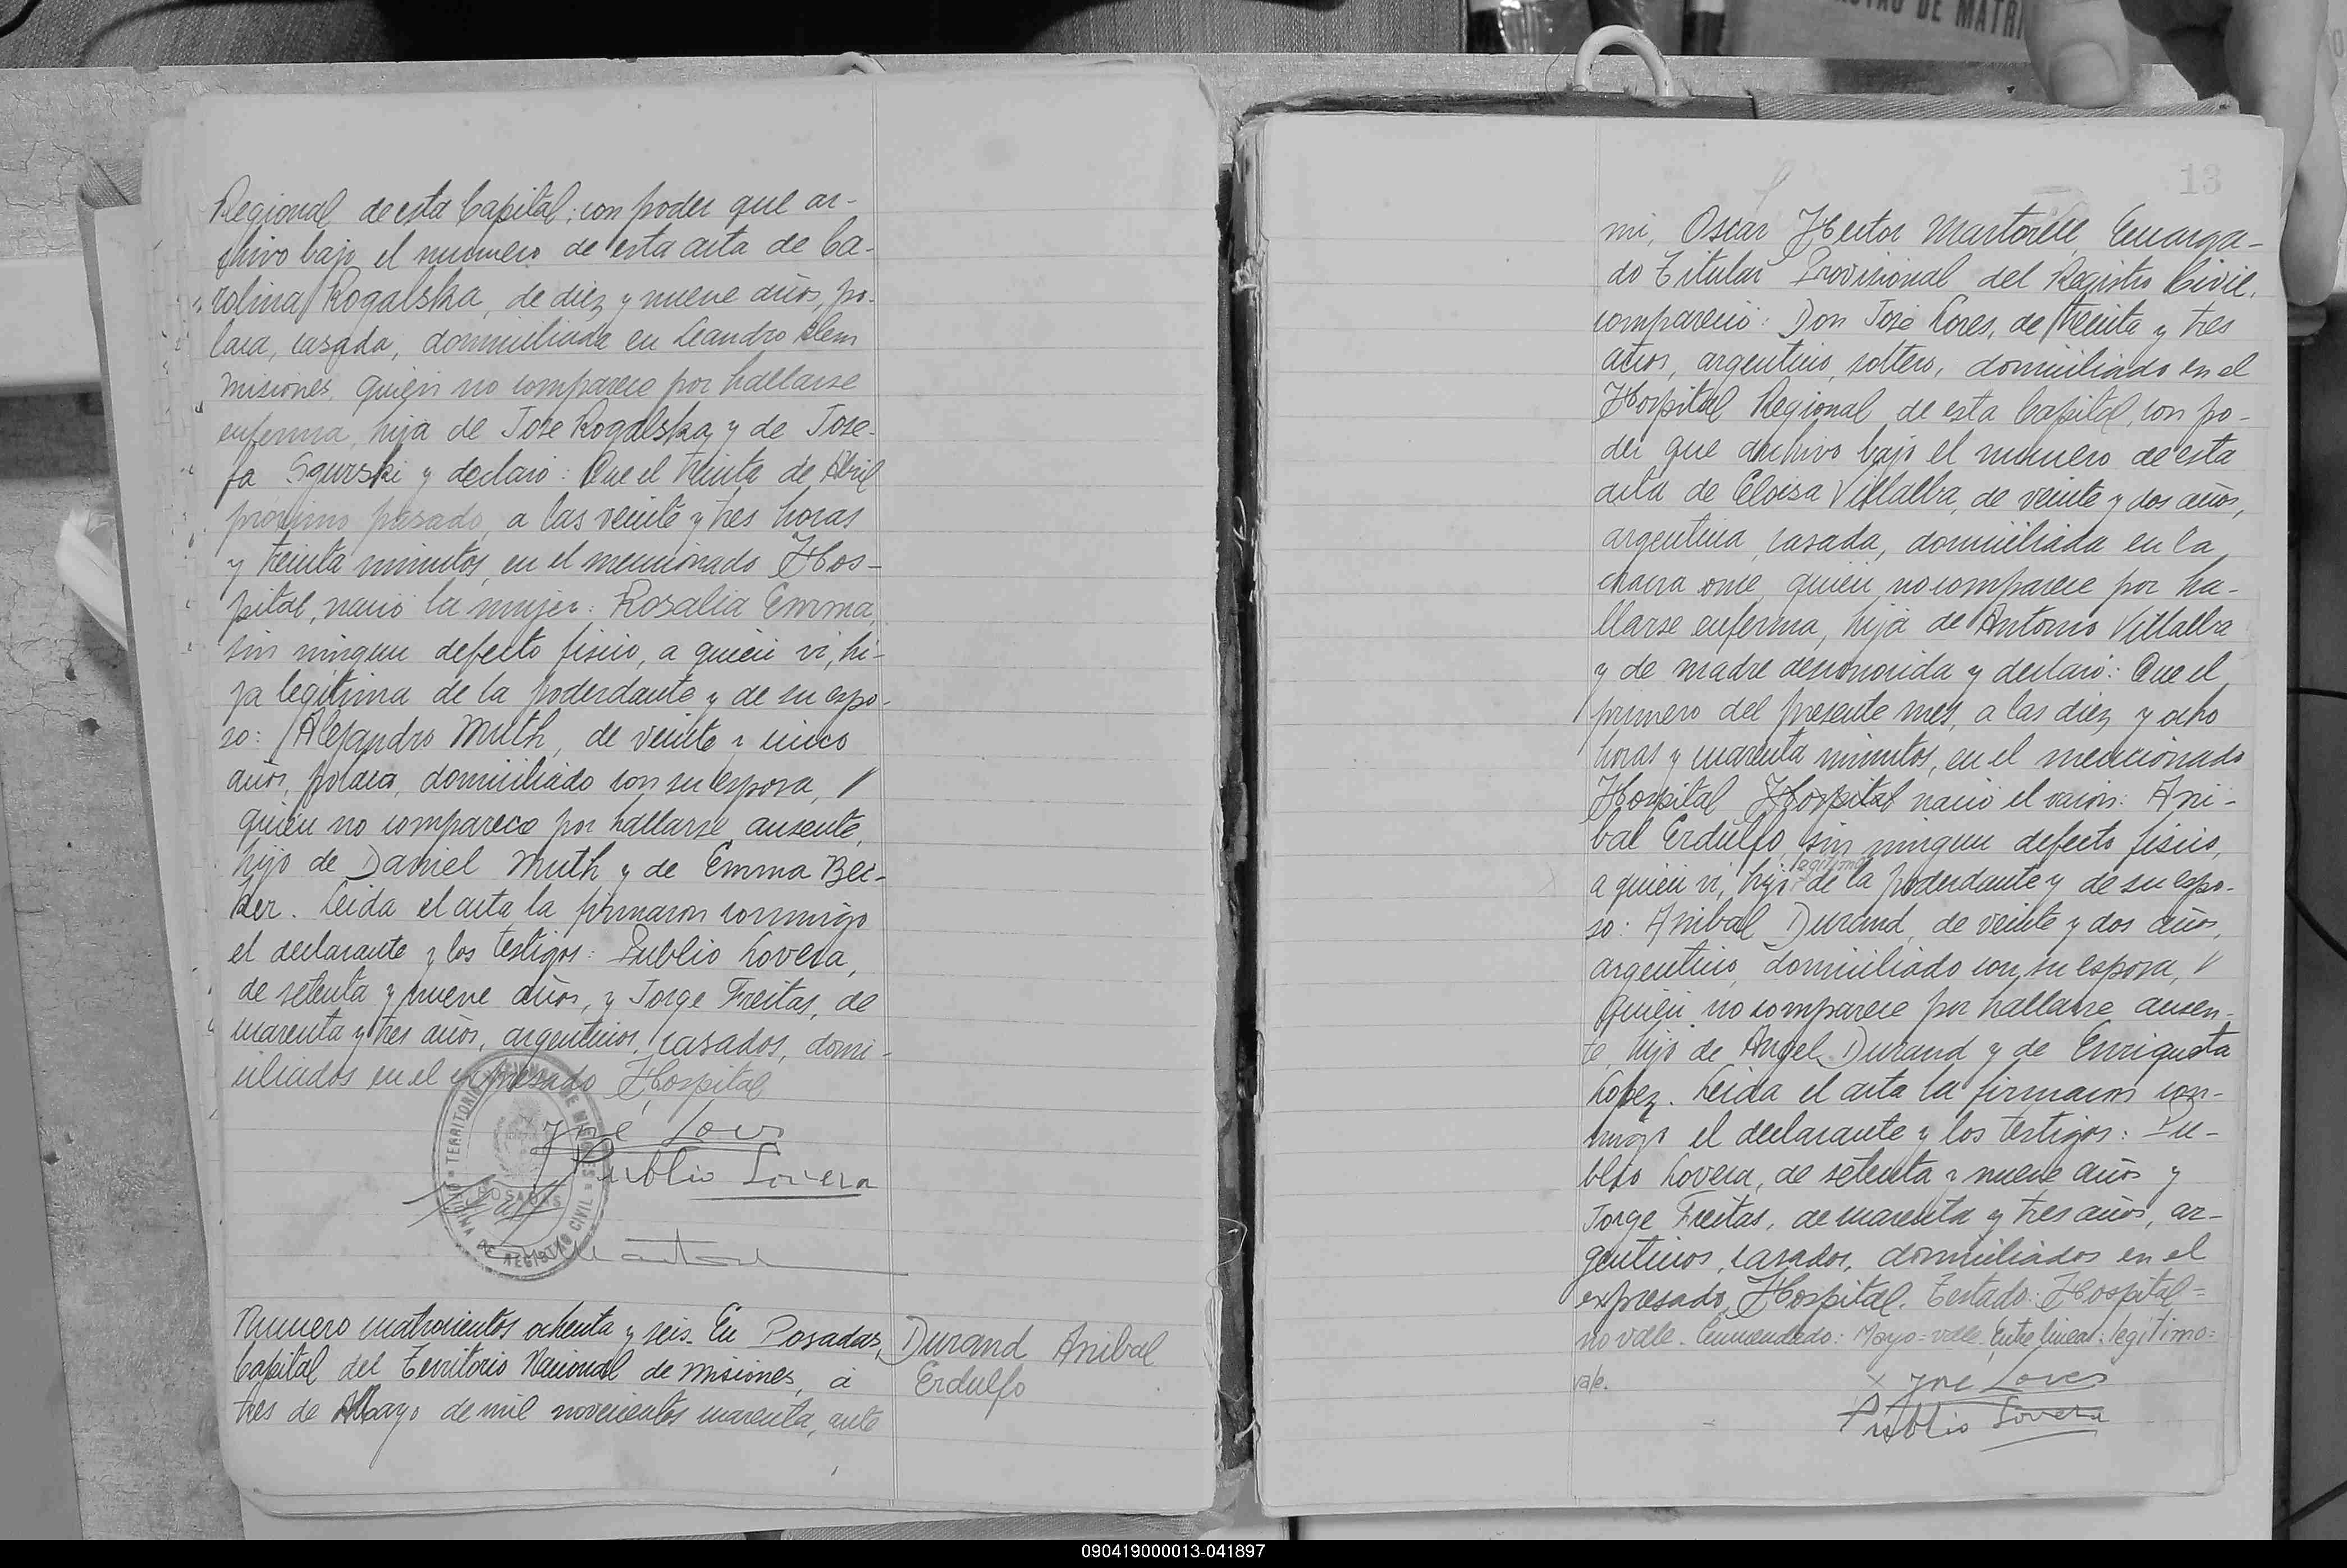 Regional de esta Capital; con poder que ar-
chivo bajo el numero de esta acta de Ca-
rolina Rogalska, de diez y nueve años, po-
laca, casada, domiciliada en Leandro Alem
Misiones, quien no comparece por hallarse
enferma, hija de Jose Rogalska, y de Jose-
fa Sgurski y declaró: Que el treinta de Abril
próximo pasado, a las veinte y tres horas
y treinta minutos, en el mencionado Hos-
pital, nació la mujer: Rosalia Emma,
sin ningun defecto fisico, a quién vi, hi-
ja legitima de la poderdante y de su espo-
so: Alejandro Muth, de veinte y cinco
años, polaco, domiciliado con su esposa,
quién no comparece por hallarse ausente,
hijo de Daniel Muth y de Emma Bec-
ker. Leida el acta la firmaron conmigo
el declarante y los testigos: Publio Lovera,
de setenta y nueve años, y Jorge Freitas, de
cuarenta y tres años, argentinos, casados, domi-
ciliados en el expresado Hospital
José Lores
Publio Lovera
TERRITORIO DE MISIONES
POSADAS
OFICINA DE REGISTRO CIVIL
Numero cuatrocientos ochenta y seis. En Posadas,
Capital del Territorio Nacional de Misiones, á
tres de Mayo de mil novecientos cuarenta, ante
Durand Anibal
Erdulfo
13
mi, Oscar Hector Martorell Encarga-
do Titular Provisional del Registro Civil,
compareció: Don José Lores, de treinta y tres
años, argentino, soltero, domiciliado en el
Hospital Regional de esta Capital, con po-
der que archivo bajo el numero de esta
acta de Eloisa Villalba, de veinte y dos años,
argentina, casada, domiciliada en la
chacra once, quién no comparece por ha-
llarse enferma, hija de Antonio Villalba
y de madre desconocida y declaró: Que el
primero del presente mes, a las diez y ocho
horas y cuarenta minutos, en el mencionado
Hospital Hospital nació el varón: Ani-
bal Erdulfo, sin ningun defecto fisico,
legitimo
a quién vi, hijo de la poderdante y de su espo-
so: Anibal Durand, de veinte y dos años,
argentino, domiciliado con su esposa,
quién no comparece por hallarse ausen-
te, hijo de Angel Durand y de Enriqueta
Lopez. Leida el acta la firmaron con-
migo el declarante y los testigos: Pu-
blio Lovera, de setenta y nueve años y
Jorge Freitas, de cuarenta y tres años, ar-
gentinos, casados, domiciliados en el
expresado Hospital. Testado: Hospital=
no vale. Enmendado: Mayo=vale. Entre lineas: legitimo=
vale.
José Lores
Publio Lovera
090419000013-041897